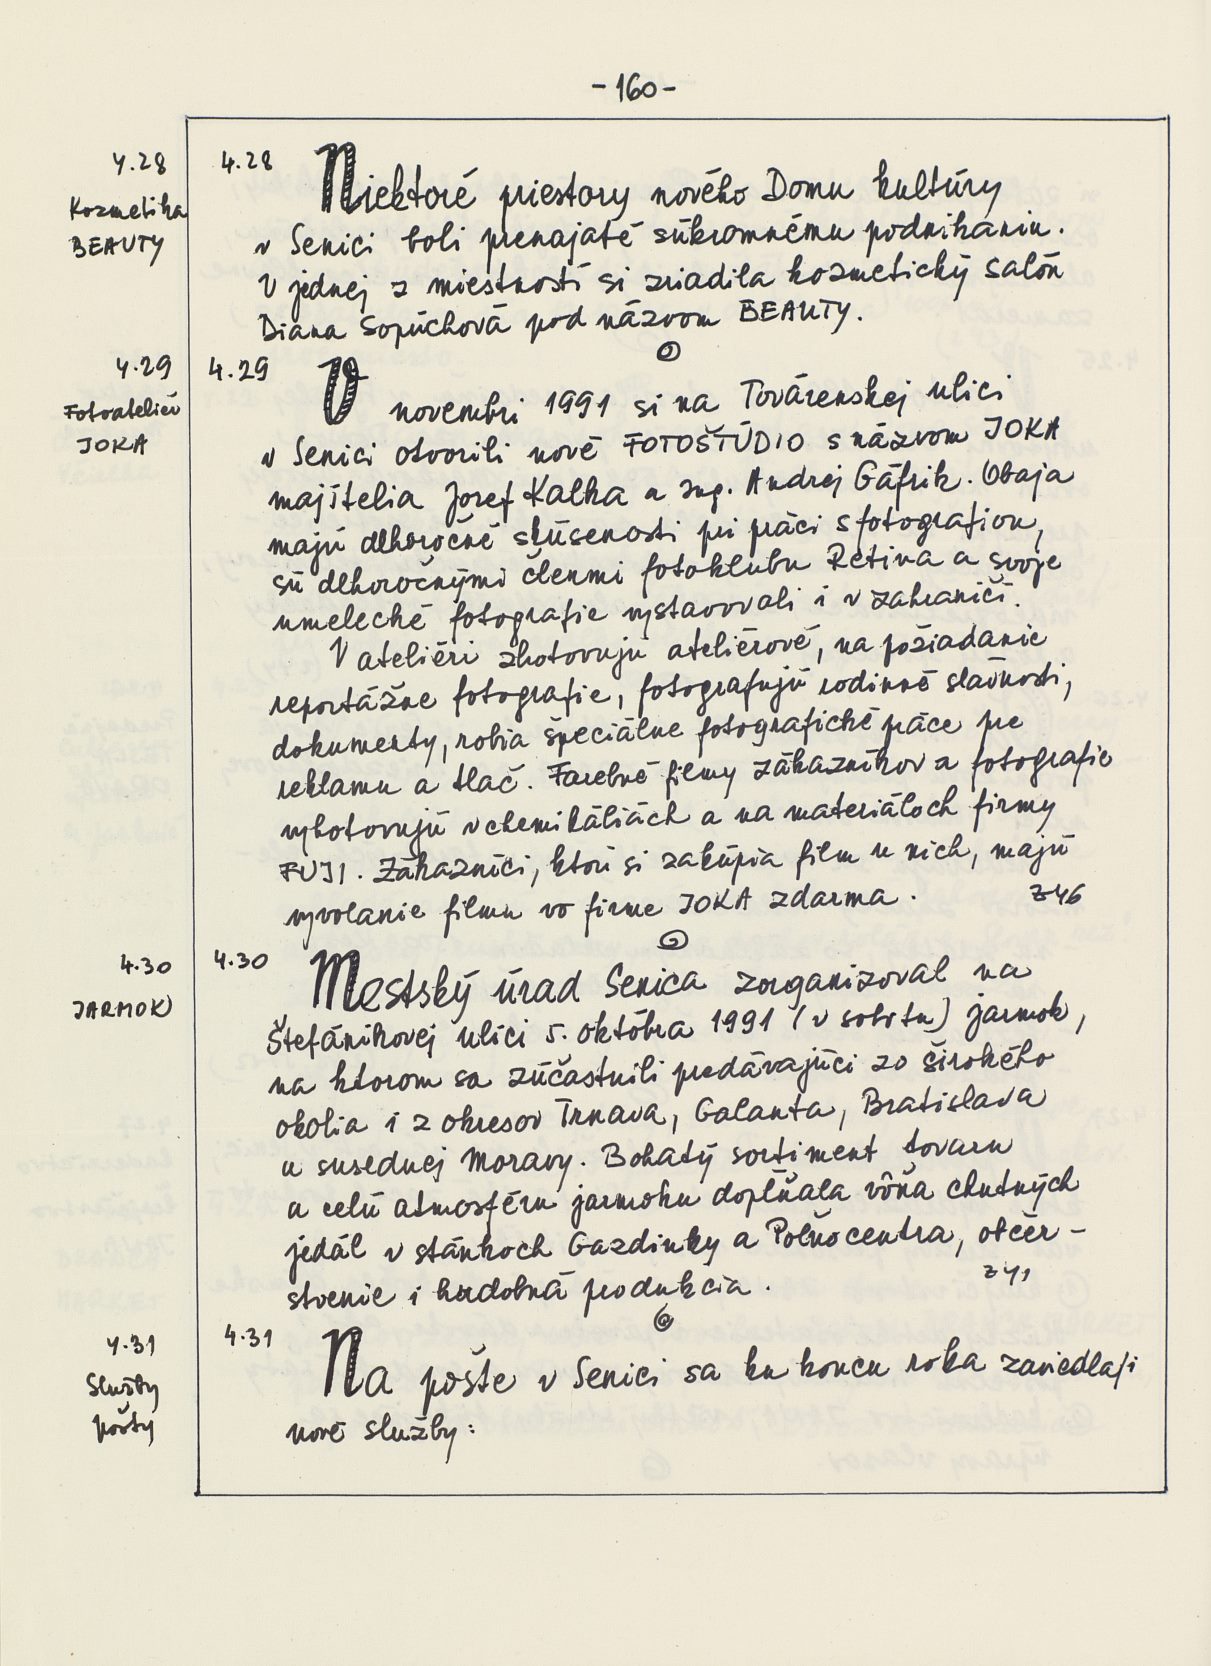 - 160 -
4.28
Kozmetika
BEAUTY
4.28 Niektoré priestory nového Domu kultúry
v Senici boli prenajaté súkromnému podnikaniu.
V jednej z miestností si zriadila kozmetický salón
Diana Sopúchová pod názvom BEAUTY.
4.29
Fotoateliér
JOKA
4.29 V novembri 1991 si na Továrenskej ulici
v Senici otvorili nové FOTOŠTÚDIO s názvom JOKA
majitelia Jozef Kalka a Ing. Andrej Gáfrik. Obaja
majú dlhoročné skúsenosti pri práci s fotografiou,
sú dlhoročnými členmi fotoklubu Retina a svoje
umelecké fotografie vystavovali i v zahraničí.
V ateliéri zhotovujú ateliérové, na požiadanie
reportážne fotografie, fotografujú rodinné slávnosti,
dokumenty, robia špeciálne fotografické práce pre
reklamu a tlač. Farebné filmy zákazníkov a fotografie
vyhotovujú v chemikáliách a na materiáloch firmy
FUJI. Zákazníci, ktorí si zakúpia film u nich, majú
vyvolanie filmu vo firme JOKA zdarma. Z46
4.30
JARMOK
4.30 Mestský úrad Senica zorganizoval na
Štefánikovej ulici 5. októbra 1991 (v sobotu) jarmok,
na ktorom sa zúčastnili predávajúci zo širokého
okolia i z okresov Trnava, Galanta, Bratislava
a susednej Moravy. Bohatý sortiment tovaru
a celú atmosféru jarmoku doplňala vôňa chutných
jedál v stánkoch Gazdinky a Poľnocentra, občer-
stvenie i hudobná produkcia. Z41
4.31
Služby
pošty
4.31 Na pošte v Senici sa ku koncu roka zaviedli
nové služby: